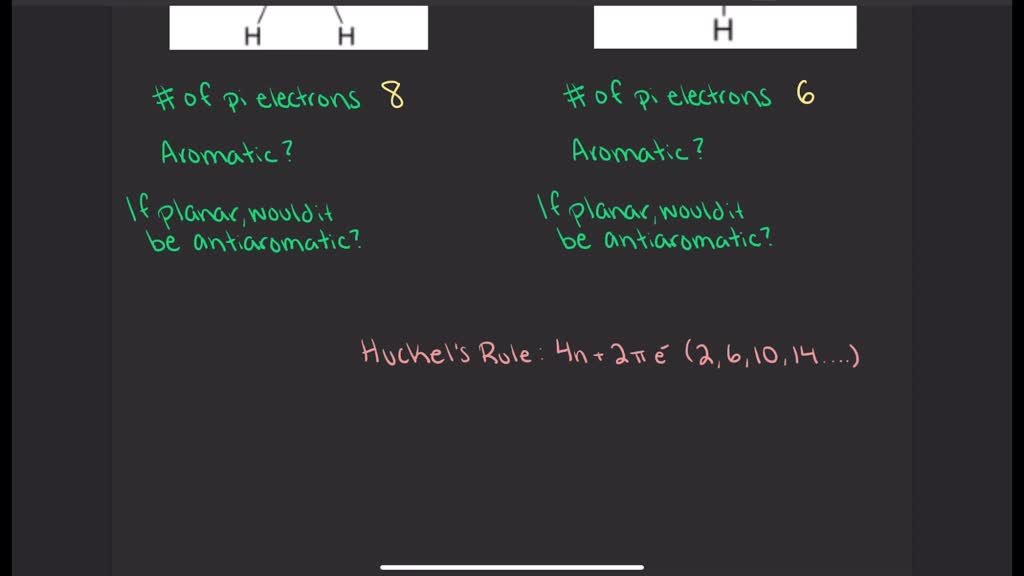 H H
H
# of pi electrons 8
Aromatic?
If planar, would it
be antiaromatic?
# of pi electrons 6
Aromatic?
If planar, would it
be antiaromatic?
Huckel's Rule: 4n+2πe⁻ (2,6,10,14....)